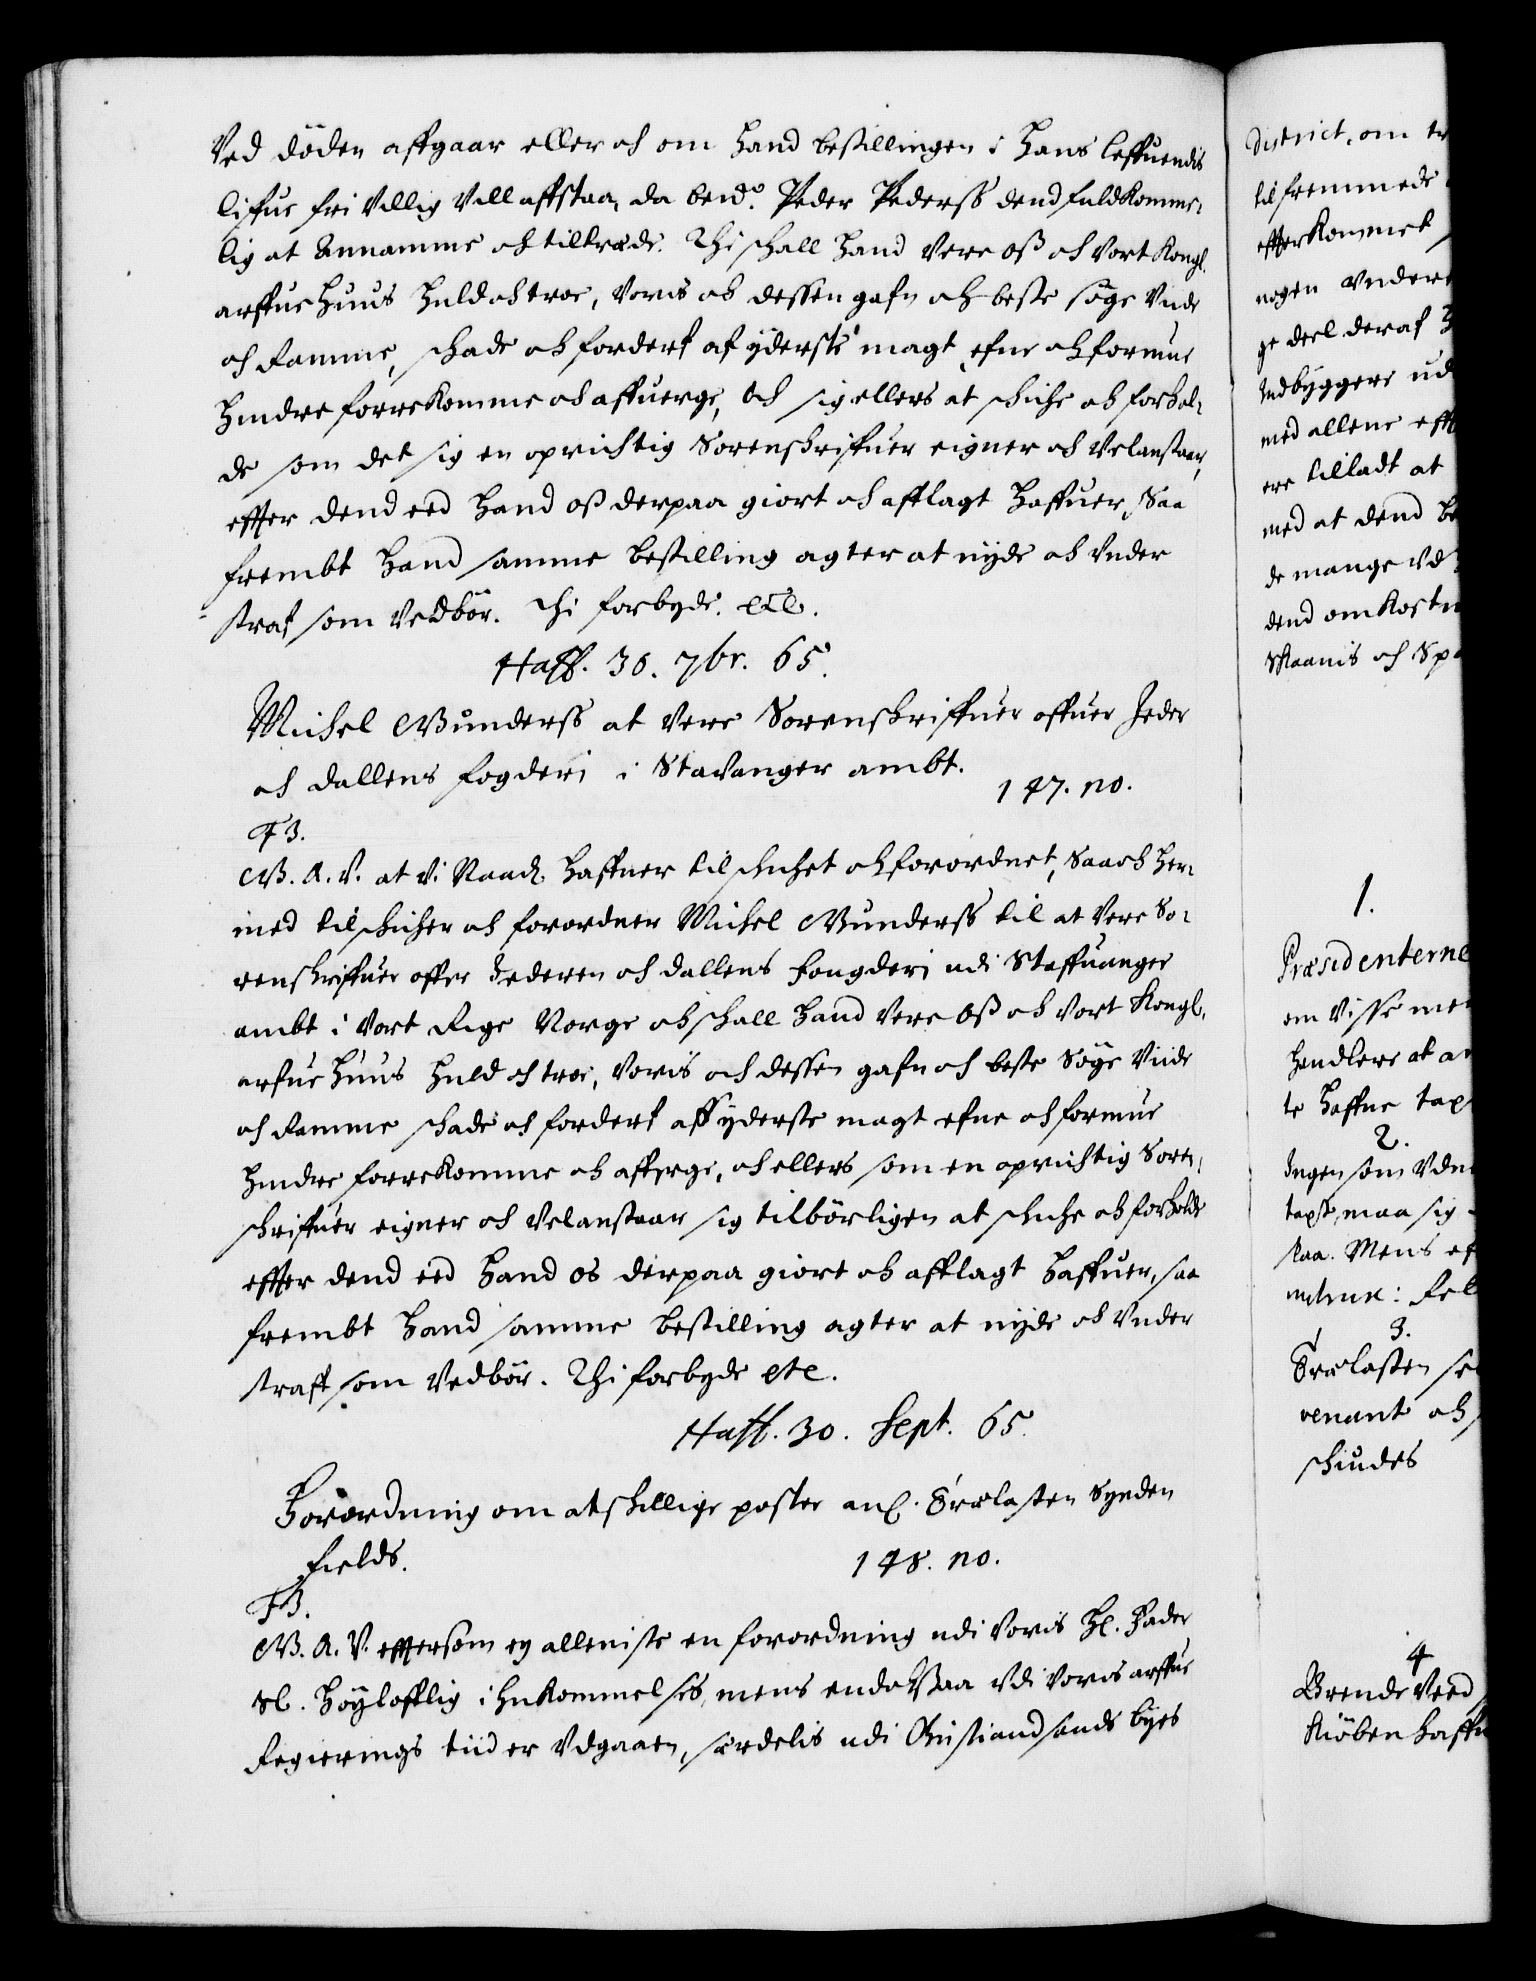 Ved döden affgaar eller och om hand bestillingen i hans leffuendis
lifue fri villig vill affstaa, da bemd.te Peder Pederss dend fuldkomme-
lig at Annamme och tiltræde. Thi schall hand vere oß och vort Kongl.
arffue Huus huld och troe, voris och dessen gafn och beste søge vide
och Ramme, schade och forderf af yderste magt, efne och formue
hindre forrekomme och affuerge, Och sig ellers at schiche och forhol-
de som det sig en oprichtig Sorenskrifuer eigner och velanstaar,
effter dend eed hand oß derpaa giort och afflagt haffuer, Saa
frembt hand samme bestilling agter at nyde och under
straf som vedbör. Thi forbyde. etc.
Haff. 30. 7br. 65.
Michel Gunderss at vere Sorenskriffuer offuer Jeder
och dallens fogderi i Stavanger ambt.
147. no.
F3.
G. A. V. at vi Naadl. haffuer tilschichet och forordnet, Saa och her-
med tilschicher och forordner Michel Gunderss til at vere So-
renskriffuer offuer Jederen och dallens fougderi udi Staffuanger
ambt i vort Rige Norge och schall hand vere oß och vort Kongl.
arfue Huus huld och troe, voris och dessen gafn och beste søge vide
och Ramme schade och forderf aff yderste magt efne och formue
hindre forrekomme och afferge, och ellers som en oprichtig Soren-
schriffuer eigner och velanstaar sig tilbörligen at schiche och forholde
effter dend eed hand os derpaa giort och afflagt haffuer, saa
frembt hand samme bestilling agter at nyde och under
straff som vedbör. Thi forbyde etc.
Haff. 30. Sept. 65.
Forordning om atskellige poster anl. Trælasten Synden
fields.
148. no.
F3.
G. A. V. effter som ey alleniste en forordning udi voris Hl. Fader
Sl. høyloflig ihukommelses, mens endochsaa udi voris arffue
Regierings tiid er udgaaen, serdelis udi Christiandsands byes
District, om
til fremmede
effterkommet
nogen under
ge deel deraf
Indbyggere ud
med allene eff
ere tilladt at
med at dend
de mange ud
dend omkost
Skaanis och Sp
1.
Præsidenterne
om visse me
handlere at
te haffue tax
2.
Ingen som ud
taxt, maa sig
staa. Mens ef
3.
Trælasten
venant och
schiudes
4
Brende veed
Kiöbenhaffu